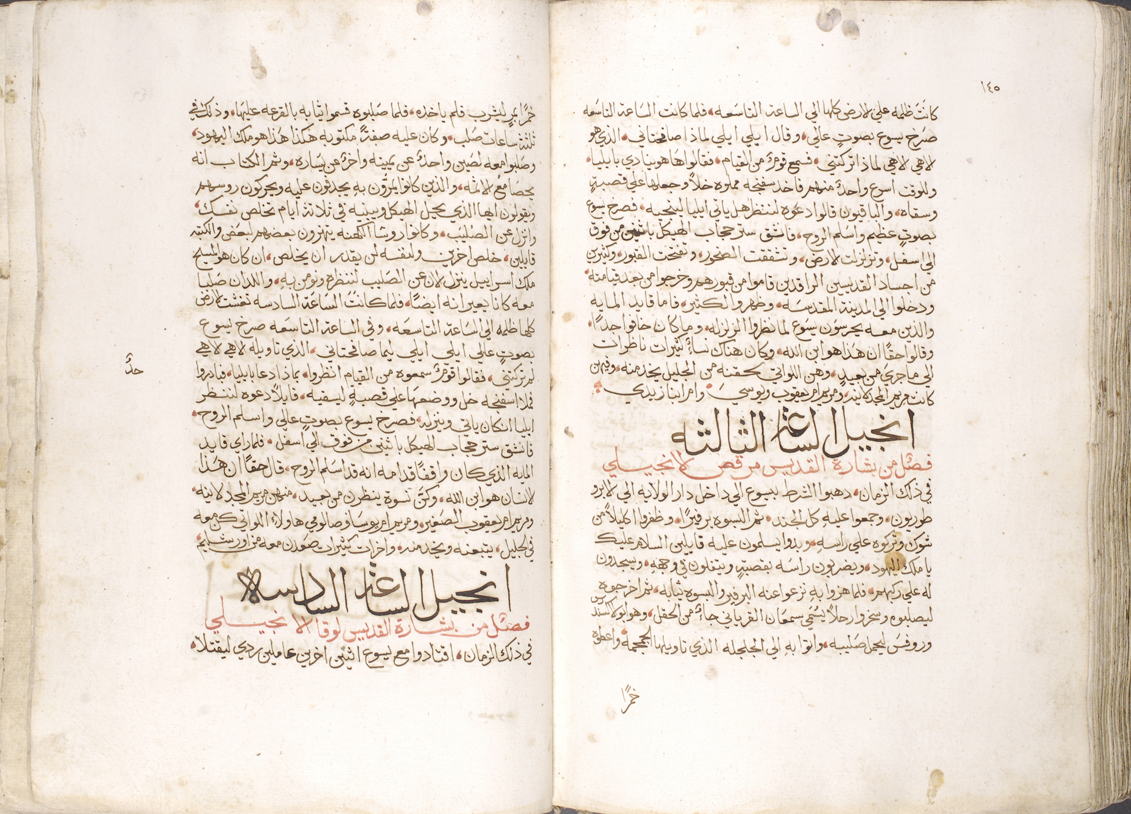 ١٤٥
كانت ظلمه على الارض كلها الي الساعة التاسعه فلما كانت الساعة التاسعه
صرخ يسوع بصوتٍ عالي وقال ايلي ايلي لماذا صافختاني الذي هو
لاهي لاهي لماذا تركتني فسمع قومٌ من القيام فقالوا ها هو ينادي بايليا
وللوقت اسرع واحدٌ منهم فاخد سفنجه مملوه خلاً وجعلها على قصبةٍ
وسقاه والباقيون قالوا دعوه لننظر هل ياتي ايليا لينجيه فصرخ يسوع
بصوتٍ عظيم واسلم الروح فانشق ستر حجاب الهيكل باثنين من فوق
الي اسفل وتزلزلت الارض وتشققت الصخور وتفتحت القبور وكثيرٌ
من اجساد القديسين الراقدين قاموا من قبورهم وخرجوا من بعد قيامته
ودخلوا الي المدينة المقدسه وظهروا لكثير فاما قايد المايه
والذين معه يحرسون يسوع لما نظروا الزلزله وما كان خافوا جداً
وقالوا حقاً ان هذا هو ابن الله وكان هناك نساءٌ كثيرات ناظرات
الي ما جرى من بعيدٍ وهن اللواتي لحقنه من الجليل يخدمنه وفيهن
كانت مريم المجدلانيه ومريم ام يعقوب ويوسي وام ابنا زبدي
انجيل الساعة الثالثه
فصل من بشارة القديس مرقص الانجيلي
في ذلك الزمان دهبوا الشرط بيسوع الي داخل دار الولايه الي الابرو
طوريون وجمعوا عليه كل الجند ثم البسوه برفيرًا وظفروا اكليلاً من
شوك وتركوه على راسه وبدوا يسلمون عليه قايلين السلام عليك
يا ملك اليهود ويضربون راسه بقصبةٍ ويتفلون في وجهه ويسجدون
له على ركبهم فلما هزوا به نزعوا عنه البرفير والبسوه ثيابه ثم اخرجوه
ليصلبوه وسخروا رجلاً يسمى سمعان القرياني جاءٌ من الحقل وهو ابو الكسندرس
وروفس ليحمل صليبه واتوا به الي الجلجله الذي تاويلها الجمجمه واعطوه
خمرًا
خمرًا بمرٍ ليشرب فلم ياخذه فلما صلبوه قسموا ثيابه بالقرعه عليها وذلك في
ثلثة ساعات صُلب وكان عليه صفةٌ مكتوبه هكذا هذا هو ملك اليهود
وصلبوا معه لصين واحدٌ عن يمينه واخرٌ عن يساره وتم الكتاب انه
يحصا مع الاثمه والذين كانوا يمرون به يجدفون عليه ويحركون روسهم
ويقولون ايها الذي يحيل الهيكل ويبنيه في ثلاثة ايام تخلص نفسك
وانزل عن الصليب وكانوا روسا الكهنه يتهزون بعضهم ببعض والكتبه
قايلين خلص اخرين ولنفسه لن يقدر ان يخلص ان كان هو المسيح
ملك اسراييل ينزل الان عن الصليب لننظره ونومن به واللذان صلبا
معه كانا يعيرانه ايضاً فلما كانت الساعة السادسه تغشت الارض
كلها ظلمه الي الساعة التاسعه وفي الساعة التاسعه صرخ يسوع
بصوتٍ عالي ايلي ايلي ليما صافختاني الذي تاويله لاهي لاهي
لم تركتني فقالوا قومٌ سمعوه من القيام انظروا بماذا دعا بايليا فبادروا
فملا اسفنجه خل ووضعها على قصبةٍ ليسقيه قايلاً دعوه لننظر
ايليا ان كان ياتي وينزله فصرخ يسوع بصوتٍ عالي واسلم الروح
فانشق ستر حجاب الهيكل باثنين من فوق الي اسفل فلما راى قايد
المايه الذي كان واقفاً قدامه انه قد اسلم الروح قال حقاً ان هذا
الانسان هو ابن الله وكن نسوة ينظرن من بعيد منهن مريم المجدلانيه
ومريم ام يعقوب الصغير ومريم ام يوسا وصالومي هاولاء اللواتي كن معه
في الجليل يتبعنه ويخدمنه واخرات كثيرات صعدن معه من اورشليم
انجيل الساعة السادسه
فصل من بشارة القديس لوقا الانجيلي
في ذلك الزمان اقتادوا مع يسوع اثنين اخرين عاملين ردي ليقتلا